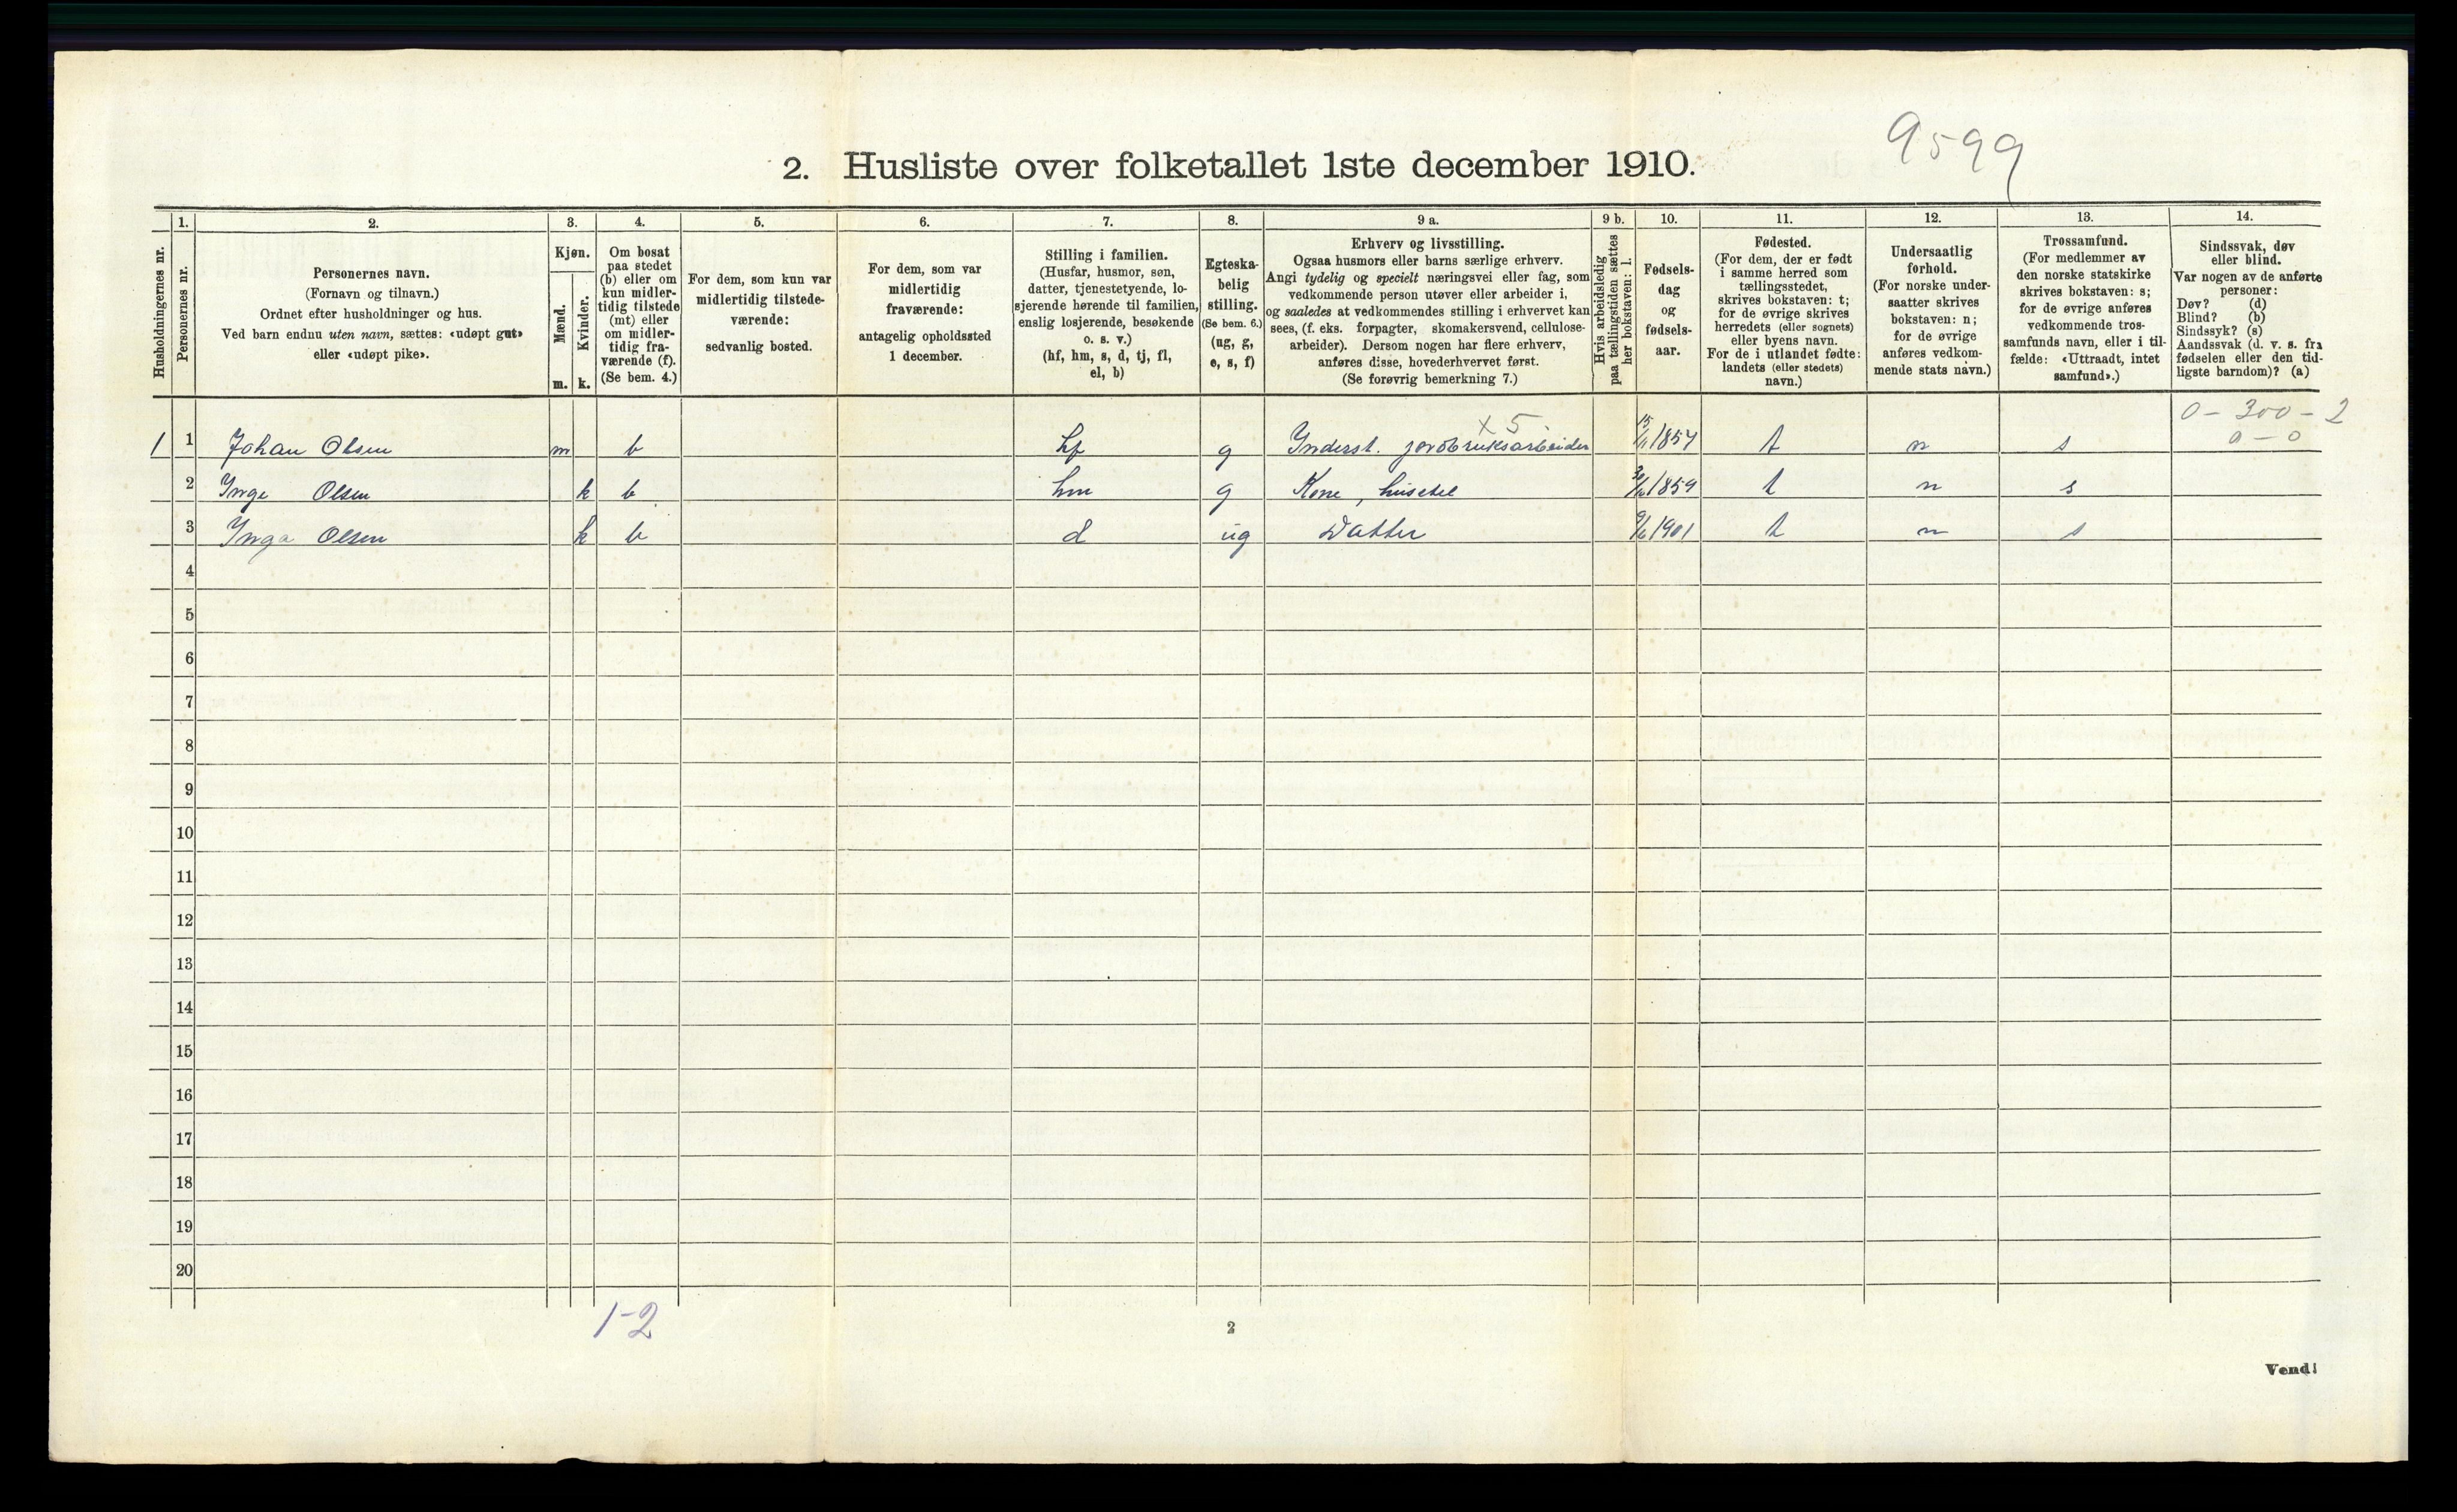 9599
2. Husliste over folketallet 1ste december 1910.
Husholdningernes nr.
1.
Personernes nr.
2.
Personernes navn.
(Fornavn og tilnavn.)
Ordnet efter husholdninger og hus.
Ved barn endnu uten navn, sættes: «udøpt gut»
eller «udøpt pike».
3.
Kjøn.
Mænd.
Kvinder.
m. k.
4.
Om bosat
paa stedet
(b) eller om
kun midler-
tidig tilstede
(mt) eller
om midler-
tidig fra-
værende (f).
(Se bem. 4.)
5.
For dem, som kun var
midlertidig tilstede-
værende:
sedvanlig bosted.
6.
For dem, som var
midlertidig
fraværende:
antagelig opholdssted
1 december.
7.
Stilling i familien.
(Husfar, husmor, søn,
datter, tjenestetyende, lo-
sjerende hørende til familien,
enslig losjerende, besøkende
o. s. v.)
(hf, hm, s, d, tj, fl,
el, b)
8.
Egteska-
belig
stilling.
(Se bem. 6.)
(ug, g,
e, s, f)
9 a.
Erhverv og livsstilling.
Ogsaa husmors eller barns særlige erhverv.
Angi tydelig og specielt næringsvei eller fag, som
vedkommende person utøver eller arbeider i,
og saaledes at vedkommendes stilling i erhvervet kan
sees, (f. eks. forpagter, skomakersvend, cellulose-
arbeider). Dersom nogen har flere erhverv,
anføres disse, hovederhvervet først.
(Se forøvrig bemerkning 7.)
9 b.
Hvis arbeidsledig
paa tællingstiden sættes
her bokstaven: l.
10.
Fødsels-
dag
og
fødsels-
aar.
11.
Fødested.
(For dem, der er født
i samme herred som
tællingsstedet,
skrives bokstaven: t;
for de øvrige skrives
herredets (eller sognets)
eller byens navn.
For de i utlandet fødte:
landets (eller stedets)
navn.)
12.
Undersaatlig
forhold.
(For norske under-
saatter skrives
bokstaven: n;
for de øvrige
anføres vedkom-
mende stats navn.)
13.
Trossamfund.
(For medlemmer av
den norske statskirke
skrives bokstaven: s;
for de øvrige anføres
vedkommende tros-
samfunds navn, eller i til-
fælde: «Uttraadt, intet
samfund».)
14.
Sindssvak, døv
eller blind.
Var nogen av de anførte
personer:
Døv? (d)
Blind? (b)
Sindssyk? (s)
Aandssvak (d. v. s. fra
fødselen eller den tid-
ligste barndom)? (a)
0 - 300 - 2
0 - 0
x 5
1 1 Johan Olsen m b hf g Inderst. jordbruksarbeider 1857 t n s
2 Inge Olsen k b hm g Kone, husstel 1859 t n s
3 Inga Olsen k b d ug Datter 1901 t n s
4
5
6
7
8
9
10
11
12
13
14
15
16
17
18
19
20
1-2
2
Vend!